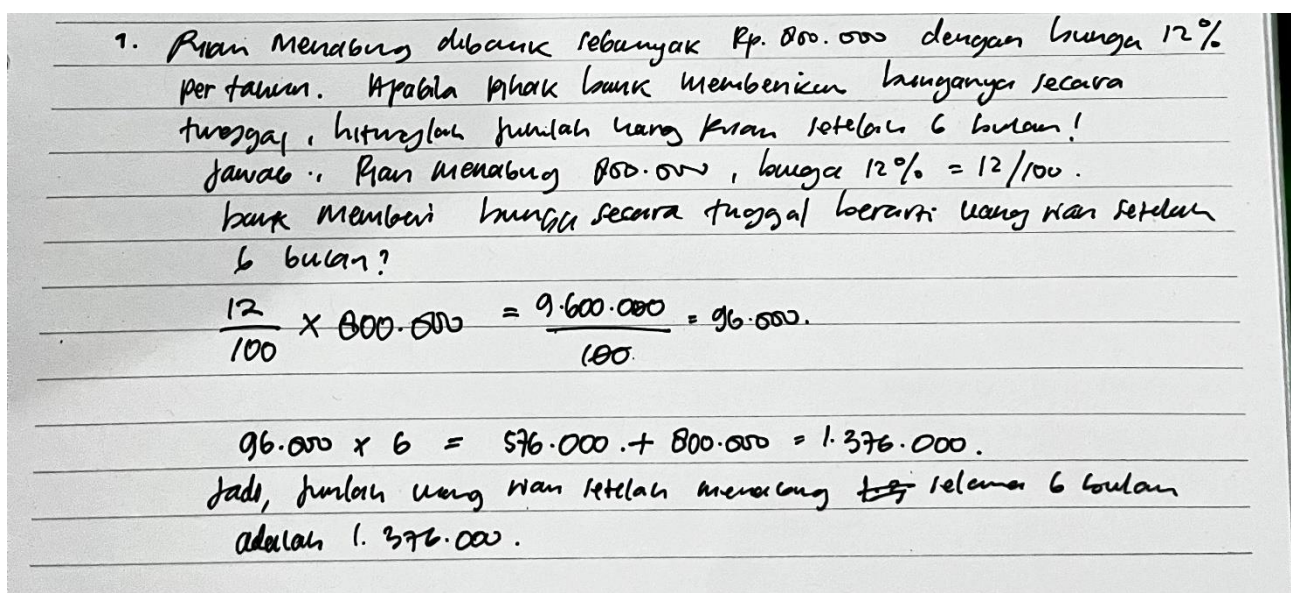 1. Rian Menabung dibank sebanyak Rp. 800.000 dengan bunga 12%
per tahun. Apabila pihak bank memberikan bunganya secara
tunggal, hitunglah jumlah uang Rian setelah 6 bulan!
Jawab : Rian menabung 800.000, bunga 12% = 12/100.
bank memberi bunga secara tunggal berarti uang rian setelah
6 bulan?
12/100 × 800.000 = 9.600.000/100 = 96.000.
96.000 × 6 = 576.000 + 800.000 = 1.376.000.
Jadi, jumlah uang rian setelah menabung selama 6 bulan
adalah 1.376.000.